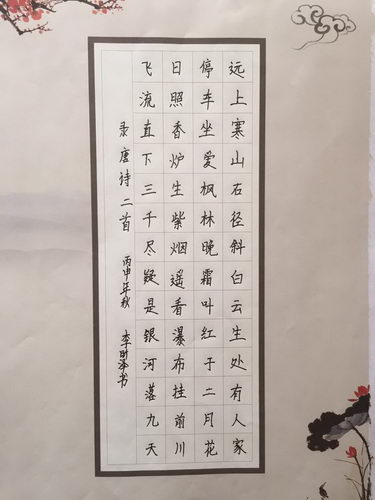 远上寒山石径斜白云生处有人家
停车坐爱枫林晚霜叶红于二月花
日照香炉生紫烟遥看瀑布挂前川
飞流直下三千尽疑是银河落九天
录唐诗二首 丙申年秋 李时泽书